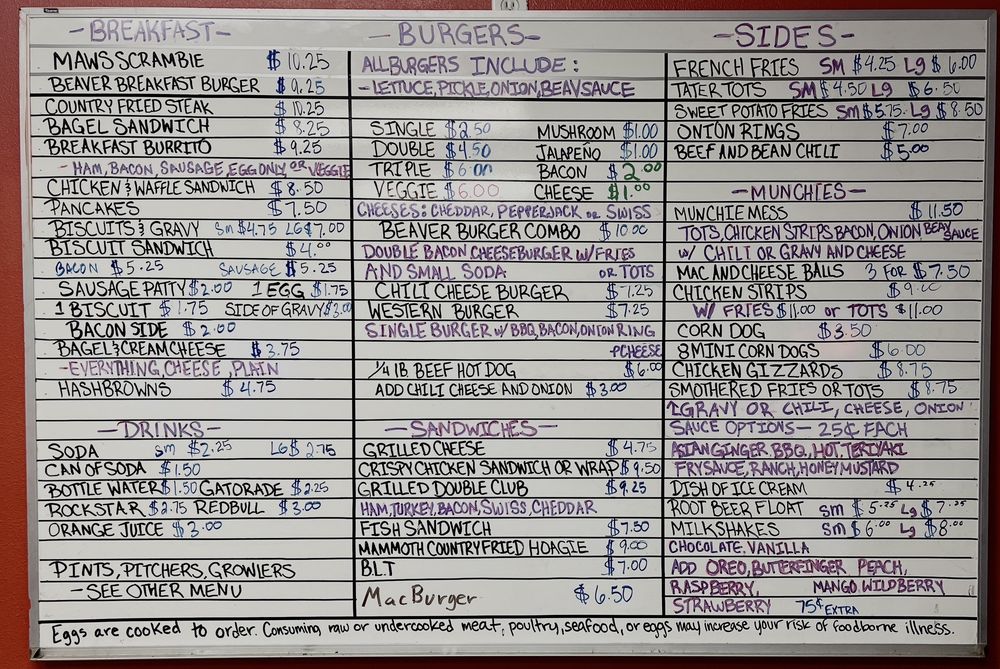 -BREAKFAST-
MAWS SCRAMBLE $10.25
BEAVER BREAKFAST BURGER $9.25
COUNTRY FRIED STEAK $10.25
BAGEL SANDWICH $8.25
BREAKFAST BURRITO $9.25
-HAM, BACON, SAUSAGE, EGG ONLY OR VEGGIE
CHICKEN & WAFFLE SANDWICH $8.50
PANCAKES $7.50
BISCUITS & GRAVY Sm $4.75 LG $7.00
BISCUIT SANDWICH $4.00
BACON $5.25 SAUSAGE $5.25
SAUSAGE PATTY $2.00 1 EGG $1.75
1 BISCUIT $1.75 SIDE OF GRAVY $3.00
BACON SIDE $2.00
BAGEL & CREAM CHEESE $3.75
-EVERYTHING, CHEESE, PLAIN
HASHBROWNS $4.75
-DRINKS-
SODA sm $2.25 LG $2.75
CAN OF SODA $1.50
BOTTLE WATER $1.50 GATORADE $2.25
ROCKSTAR $2.75 REDBULL $3.00
ORANGE JUICE $3.00
PINTS, PITCHERS, GROWLERS
-SEE OTHER MENU
-BURGERS-
ALL BURGERS INCLUDE:
-LETTUCE, PICKLE, ONION, BEAV SAUCE
SINGLE $2.50 MUSHROOM $1.00
DOUBLE $4.50 JALAPEÑO $1.00
TRIPLE $6.00 BACON $2.00
VEGGIE $6.00 CHEESE $1.00
CHEESES: CHEDDAR, PEPPERJACK OR SWISS
BEAVER BURGER COMBO $10.00
DOUBLE BACON CHEESEBURGER W/FRIES
AND SMALL SODA OR TOTS
CHILI CHEESE BURGER $7.25
WESTERN BURGER $7.25
SINGLE BURGER W/ BBQ, BACON, ONION RING
-PCHEESE
1/4 lB BEEF HOT DOG $6.00
ADD CHILI CHEESE AND ONION $3.00
-SANDWICHES-
GRILLED CHEESE $4.75
CRISPY CHICKEN SANDWICH OR WRAP $9.50
GRILLED DOUBLE CLUB $9.25
HAM, TURKEY, BACON, SWISS, CHEDDAR
FISH SANDWICH $7.50
MAMMOTH COUNTRY FRIED HOAGIE $9.00
BLT $7.00
MacBurger $6.50
-SIDES-
FRENCH FRIES SM $4.25 Lg $6.00
TATER TOTS SM $4.50 Lg $6.50
SWEET POTATO FRIES Sm $5.75 Lg $8.50
ONION RINGS $7.00
BEEF AND BEAN CHILI $5.00
-MUNCHIES-
MUNCHIE MESS $11.50
TOTS, CHICKEN STRIPS BACON, ONION BEAV SAUCE
W/ CHILI OR GRAVY AND CHEESE
MAC AND CHEESE BALLS 3 FOR $7.50
CHICKEN STRIPS $9.00
W/ FRIES $11.00 or TOTS $11.00
CORN DOG $3.50
8 MINI CORN DOGS $6.00
CHICKEN GIZZARDS $8.75
SMOTHERED FRIES OR TOTS $8.75
GRAVY OR CHILI, CHEESE, ONION
SAUCE OPTIONS- 25¢ EACH
ASIAN GINGER, BBQ, HOT, TERIYAKI
FRY SAUCE, RANCH, HONEY MUSTARD
DISH OF ICE CREAM $4.25
ROOT BEER FLOAT Sm $5.25 Lg $7.25
MILKSHAKES Sm $6.00 Lg $8.00
CHOCOLATE, VANILLA
ADD OREO, BUTTERFINGER PEACH,
RASPBERRY, MANGO, WILDBERRY
STRAWBERRY 75¢ EXTRA
Eggs are cooked to order. Consuming raw or undercooked meat, poultry, seafood, or eggs may increase your risk of foodborne illness.